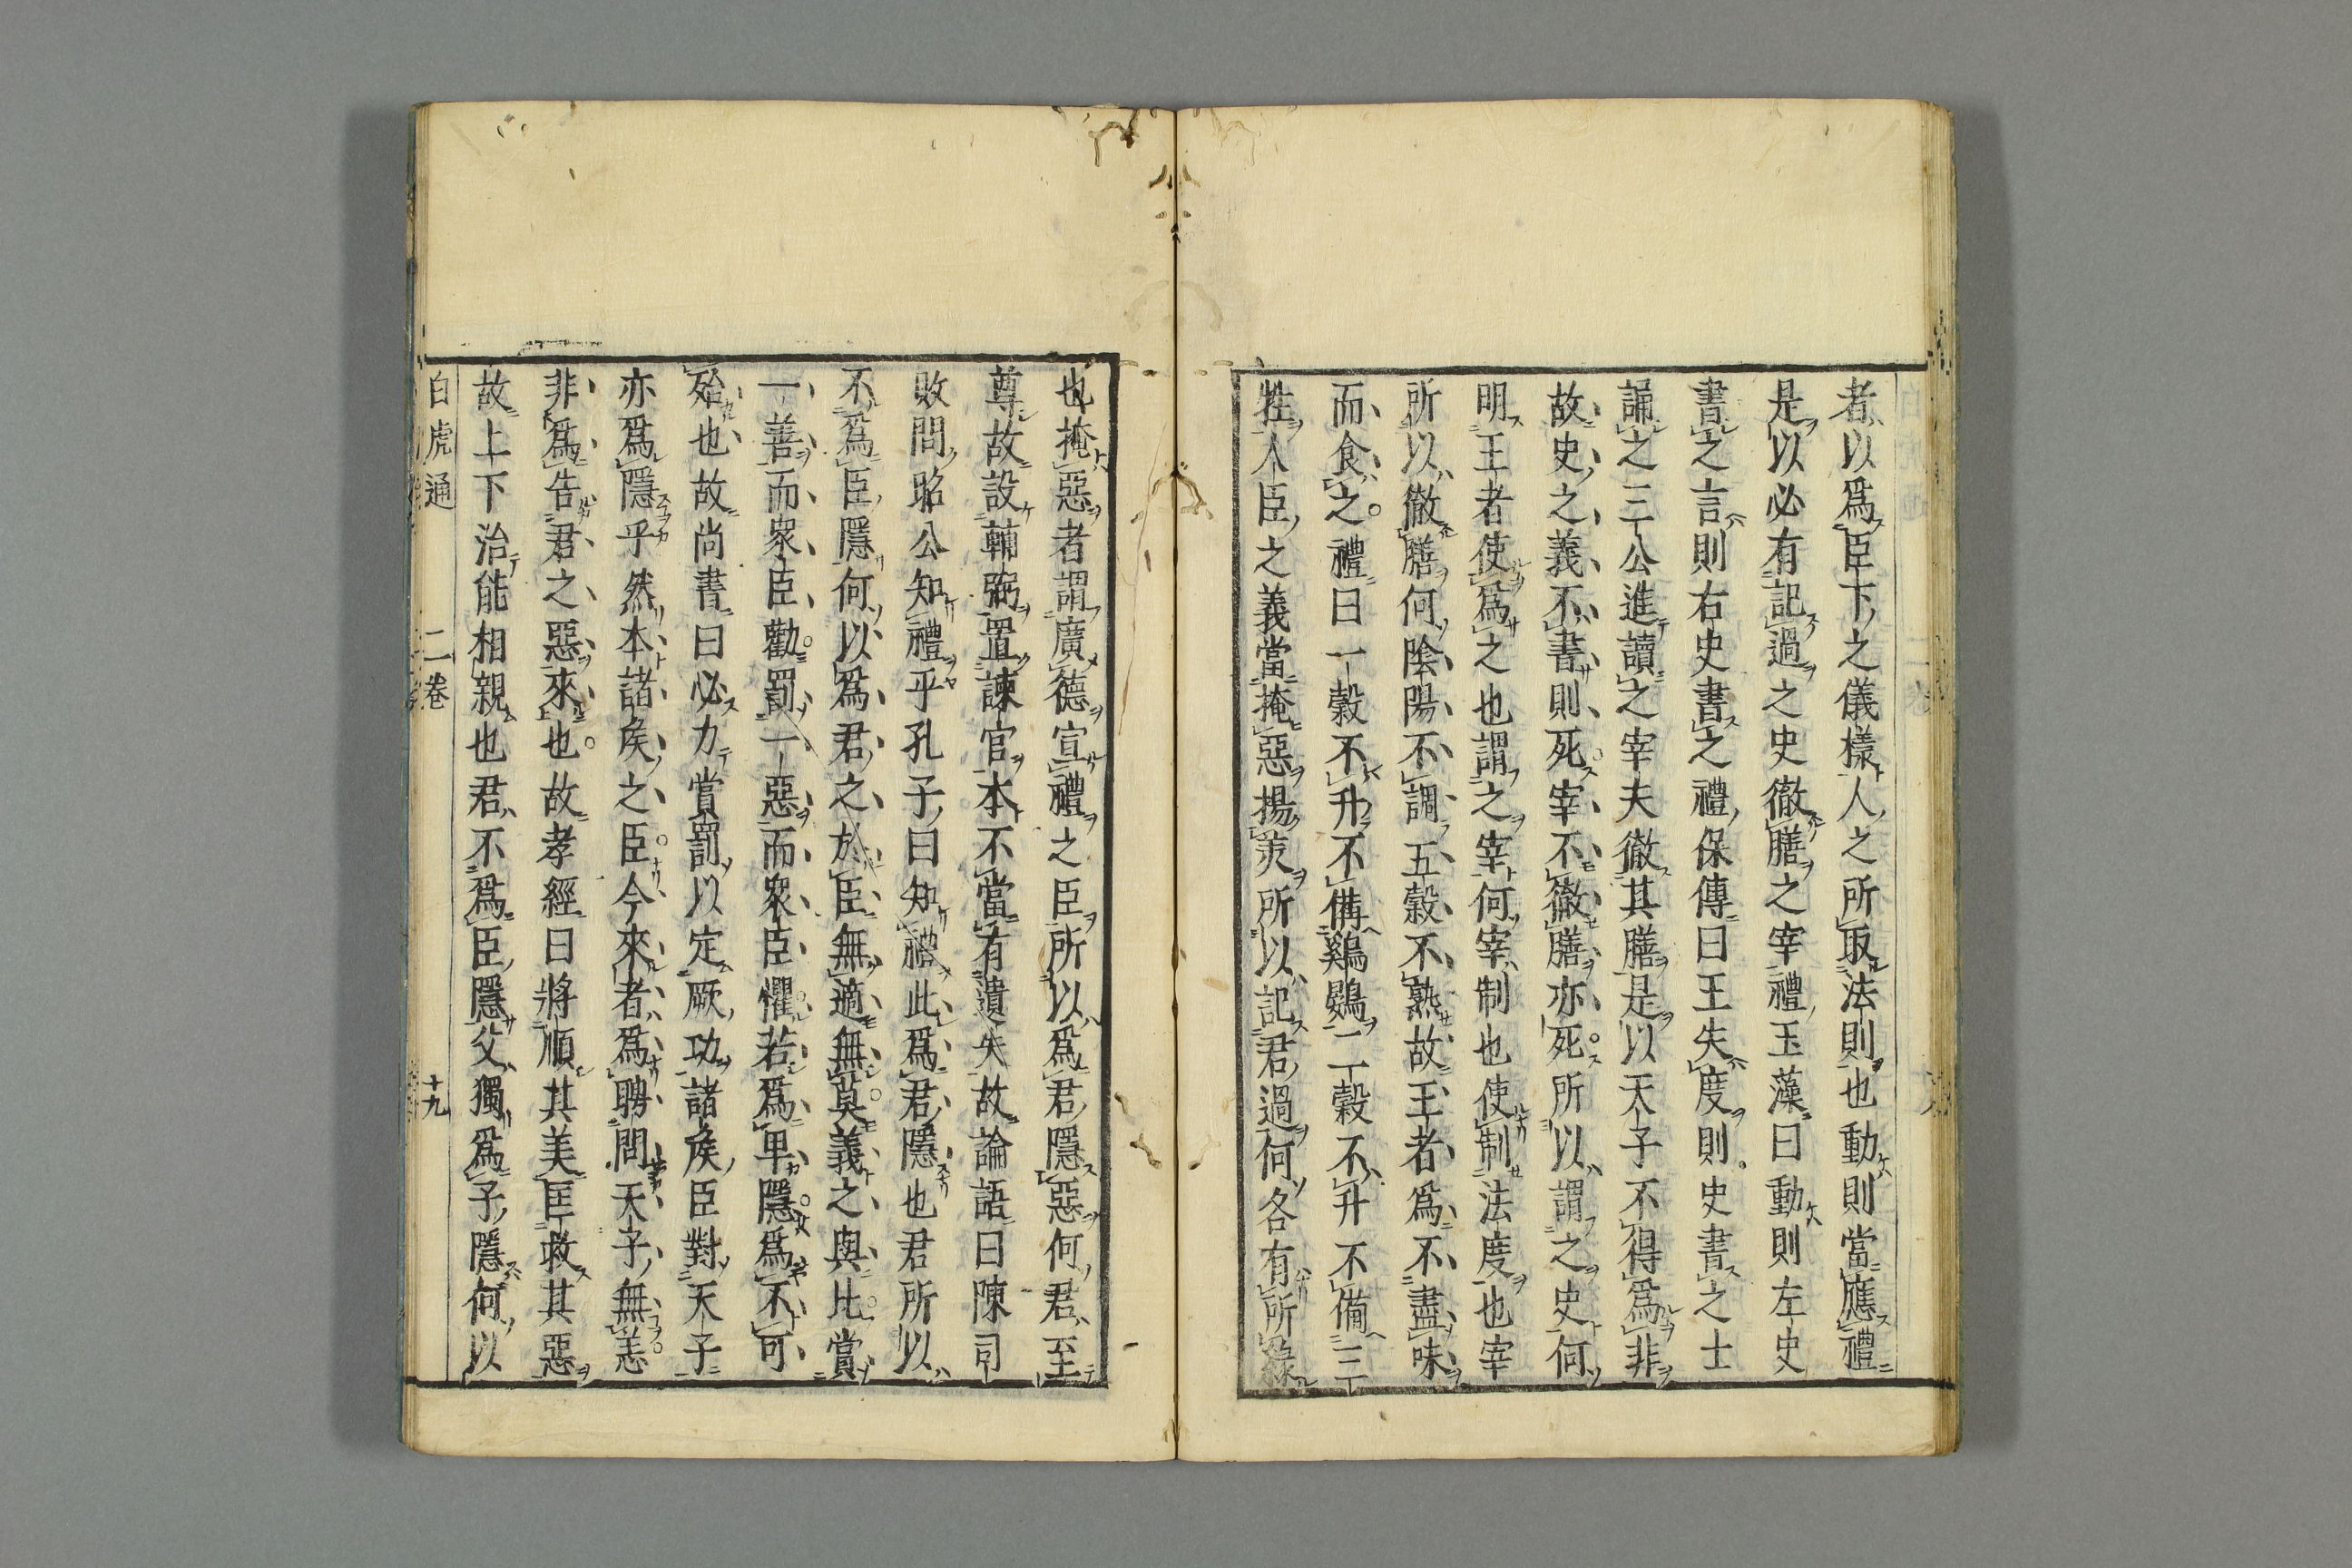 者以爲臣下之儀樣人之所取法則也動則當應禮
是以必有記過之史徹膳之宰禮玉藻曰動則左史
書之言則右史書之禮保傳曰王失度則史書之士
誦之三公進讀之宰夫徹其膳是以天子不得爲非
故史之義不書則死宰不徹膳亦死所以謂之史何
明王者使爲之也謂之宰何宰制也使制法度也宰
所以徹膳何陰陽不調五穀不熟故王者爲不盡味
而食之禮曰一穀不升不備鷄鷃二穀不升不備三
牲人臣之義當掩惡揚美所以記君過何各有所緣
也掩惡者謂廣德宣禮之臣所以爲君隱惡何君至
尊故設輔弼置諫官本不當有遺失故論語曰陳司
敗問昭公知禮乎孔子曰知禮此爲君隱也君所以
不爲臣隱何以爲君之於臣無適無莫義之與比賞
一善而衆臣勸罰一惡而衆臣懼若爲卑隱爲不可
殆也故尚書曰必力賞罰以定厥功諸侯臣對天子
亦爲隱乎然本諸侯之臣今來者爲聘問天子無恙
非爲告君之惡來也故孝經曰將順其美匡救其惡
故上下治能相親也君不爲臣隱父獨爲子隱何以
白虎通　二卷　十九